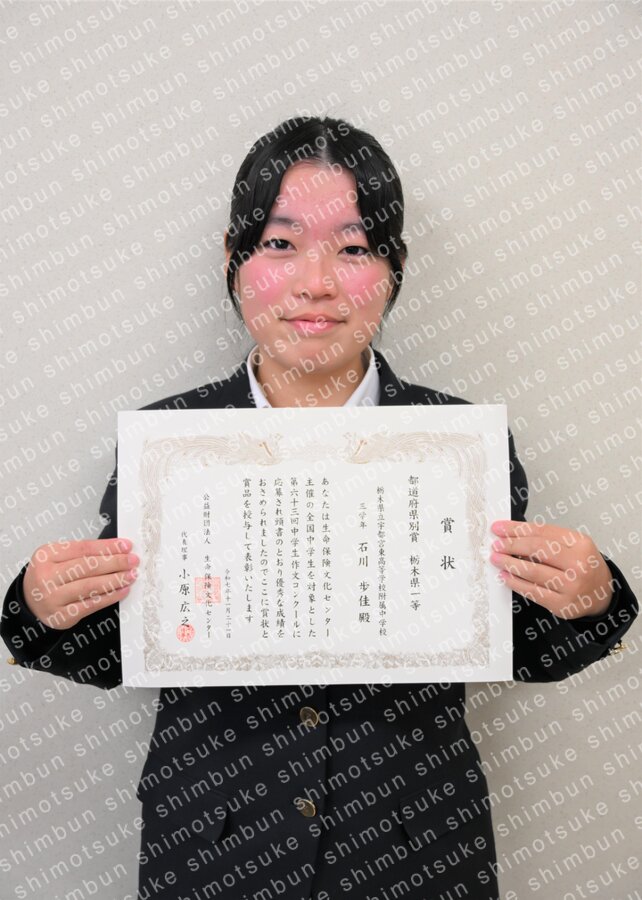 賞状
都道府県別賞 栃木県一等
栃木県立宇都宮東高等学校附属中学校
三学年 石川 歩佳 殿
あなたは生命保険文化センター
主催の全国中学生を対象とした
第六十三回中学生作文コンクールに
応募され頭書のとおり優秀な成績を
おさめられましたのでここに賞状と
賞品を授与して表彰いたします
令和七年十一月二十一日
公益財団法人 生命保険文化センター
代表理事 小原広之
shimotsuke shimbun